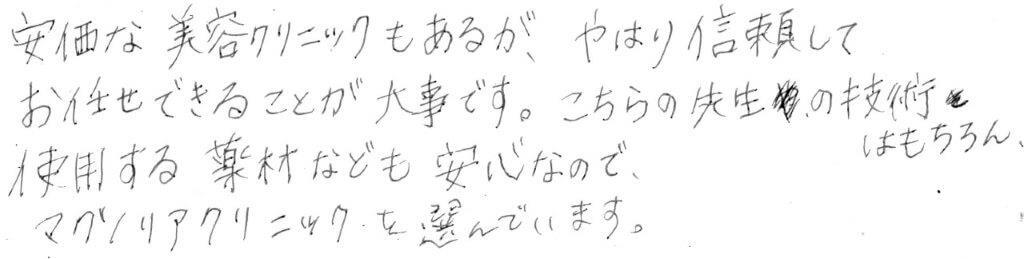 安価な美容クリニックもあるが、やはり信頼して
お任せできることが大事です。こちらの先生の技術
はもちろん、
使用する薬材なども安心なので、
マグノリアクリニックを選んでいます。